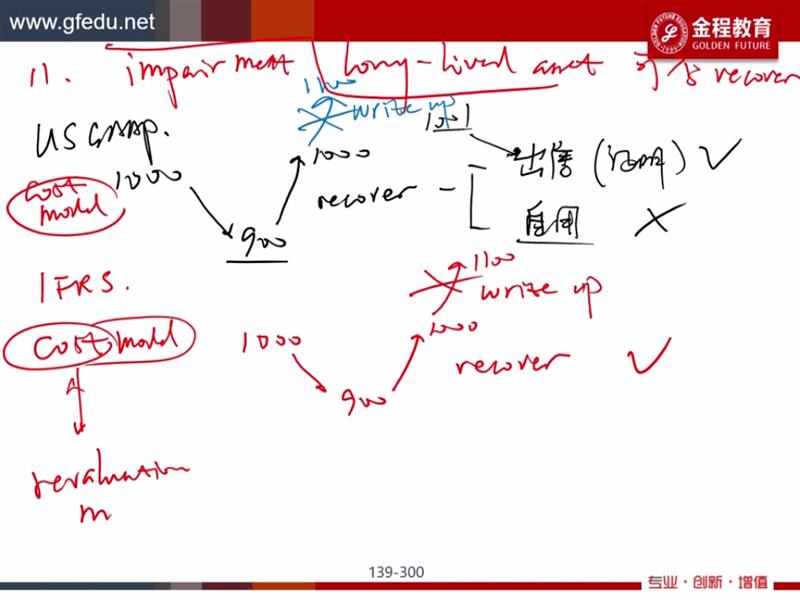 www.gfedu.net
金程教育
GOLDEN FUTURE
11. impairment long-lived asset 可否 recover
1100
write up
1001
US GAAP.
1000
1000
出售 ( ) ✓
cost model
recover
900
自用 ×
IFRS.
1100
write up
cost model
1000
1000
recover ✓
900
revaluation
m
139-300
专业·创新·增值